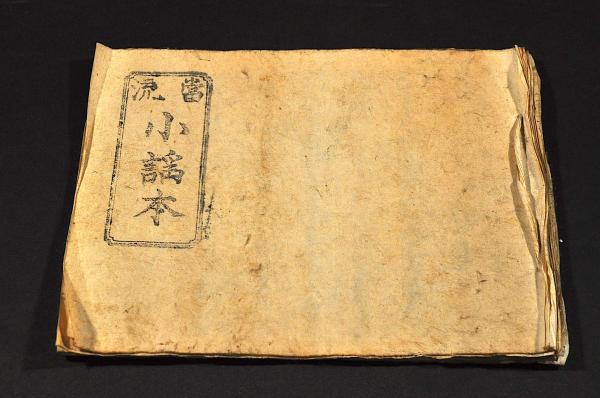 當流
小謡本